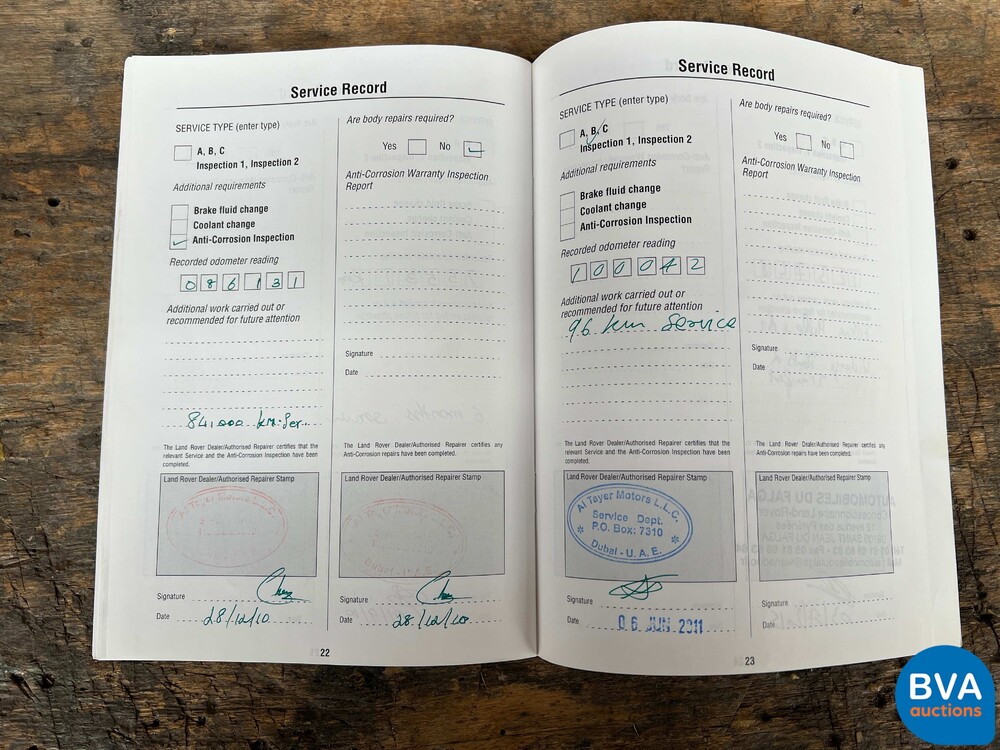 Service Record
SERVICE TYPE (enter type)
A, B, C
Inspection 1, Inspection 2
Additional requirements
Brake fluid change
Coolant change
Anti-Corrosion Inspection
Recorded odometer reading
086131
Additional work carried out or
recommended for future attention
84,000 km.Ser..
The Land Rover Dealer/Authorised Repairer certifies that the
relevant Service and the Anti-Corrosion Inspection have been
completed.
Land Rover Dealer/Authorised Repairer Stamp
Signature
Date 28/12/10
Are body repairs required?
Yes No
Anti-Corrosion Warranty Inspection
Report
Signature
Date
The Land Rover Dealer/Authorised Repairer certifies any
Anti-Corrosion repairs have been completed.
Land Rover Dealer/Authorised Repairer Stamp
Signature
Date 28/12/10
22
Service Record
SERVICE TYPE (enter type)
A, B, C
Inspection 1, Inspection 2
Additional requirements
Brake fluid change
Coolant change
Anti-Corrosion Inspection
Recorded odometer reading
100042
Additional work carried out or
recommended for future attention
96 km Service
The Land Rover Dealer/Authorised Repairer certifies that the
relevant Service and the Anti-Corrosion Inspection have been
completed.
Land Rover Dealer/Authorised Repairer Stamp
Al Tayer Motors L.L.C.
Service Dept.
P.O. Box: 7310
Dubai - U.A.E.
Signature
Date 06 JUN 2011
Are body repairs required?
Yes No
Anti-Corrosion Warranty Inspection
Report
Signature
Date
The Land Rover Dealer/Authorised Repairer certifies any
Anti-Corrosion repairs have been completed.
Land Rover Dealer/Authorised Repairer Stamp
Signature
Date
23
BVA
auctions